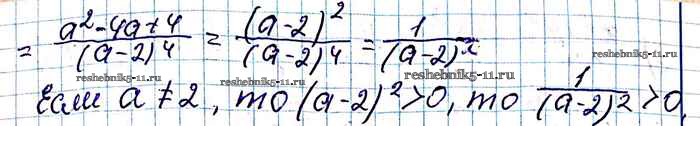 = a²-4a+4/(a-2)⁴ = (a-2)²/(a-2)⁴ = 1/(a-2)²
reshebnik5-11.ru reshebnik5-11.ru reshebnik5-11.ru
Если a ≠ 2, то (a-2)²>0, то 1/(a-2)² >0,